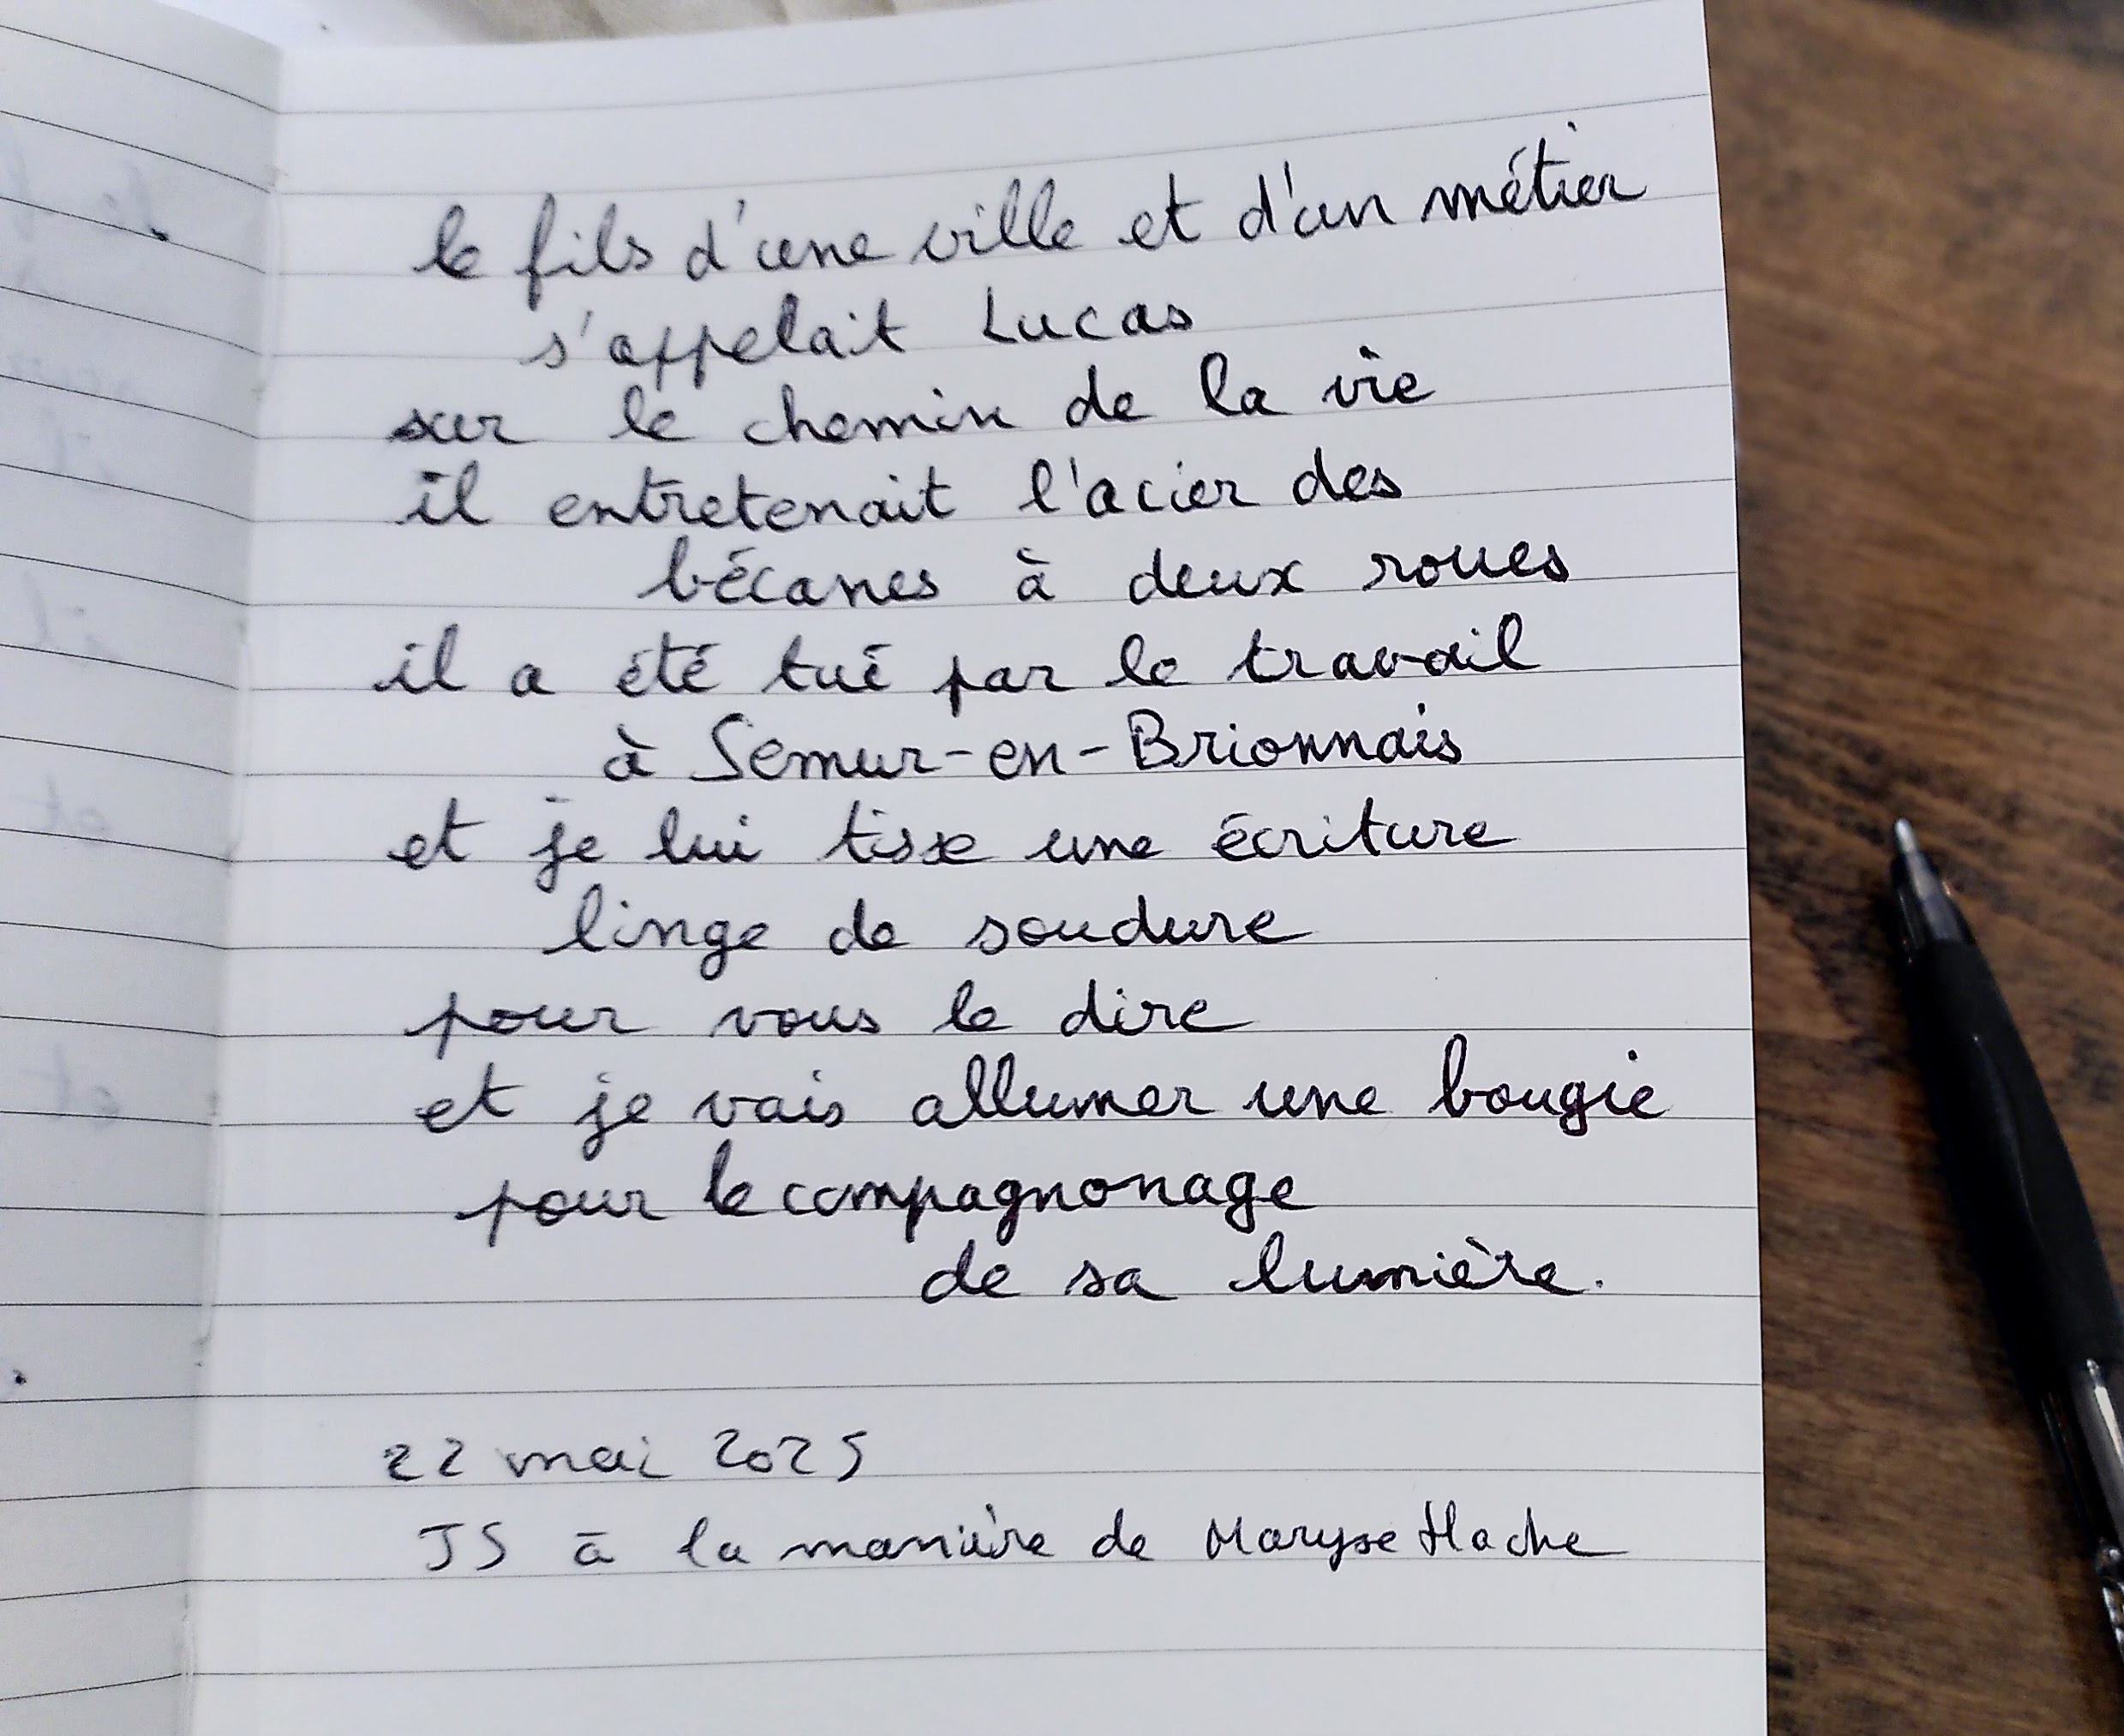 le fils d'une ville et d'un métier
s'appelait Lucas
sur le chemin de la vie
il entretenait l'acier des
bécanes à deux roues
il a été tué par le travail
à Semur-en-Brionnais
et je lui tisse une écriture
linge de soudure
pour vous le dire
et je vais allumer une bougie
pour le compagnonage
de sa lumière.
22 mai 2025
JS à la manière de Maryse Hache